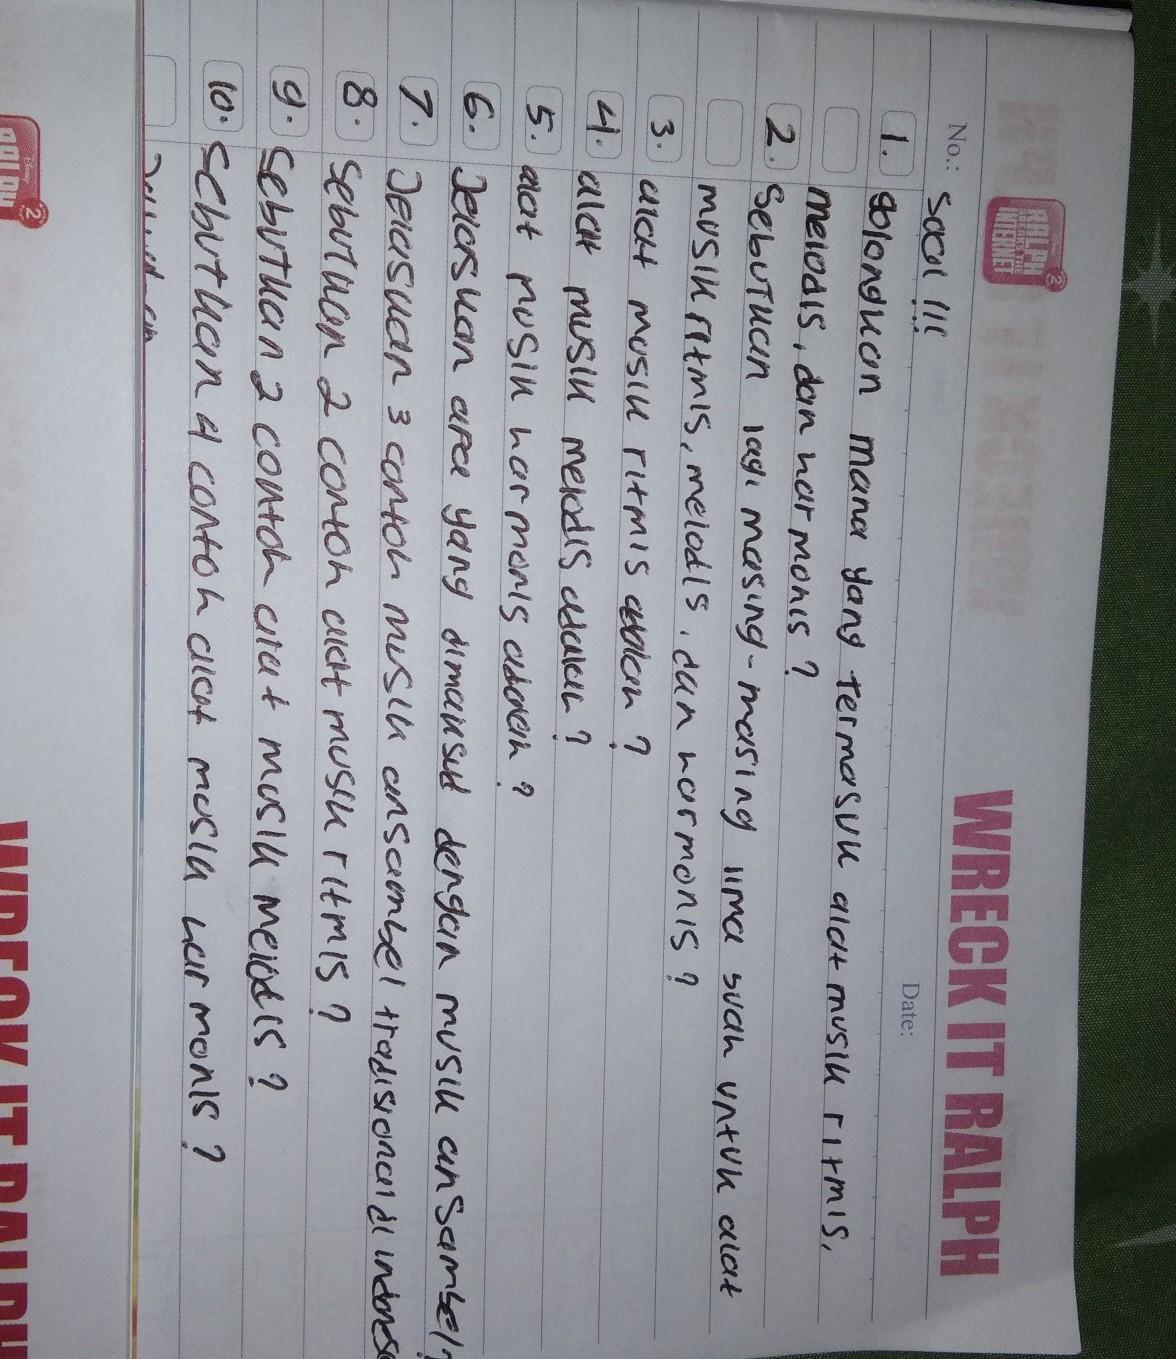 WRECK IT RALPH
RALPH
BREAKS THE
INTERNET
No.:
Date:
Soal !!!
1. golongkan mana yang termasuk alat musik ritmis,
melodis, dan harmonis ?
2. Sebutkan lagi masing-masing lima buah untuk alat
musik ritmis, melodis, dan harmonis ?
3. alat musik ritmis adalah ?
4. alat musik melodis adalah ?
5. alat musik harmonis adalah ?
6. Jelaskan apa yang dimaksud dengan musik ansambel?
7. Jelaskan 3 contoh musik ansambel tradisional di indones
8. Sebutkan 2 contoh alat musik ritmis ?
9. Sebutkan 2 contoh alat musik melodis ?
10. Sebutkan 4 contoh alat musik harmonis ?
RALPH
WRECK IT RALPH